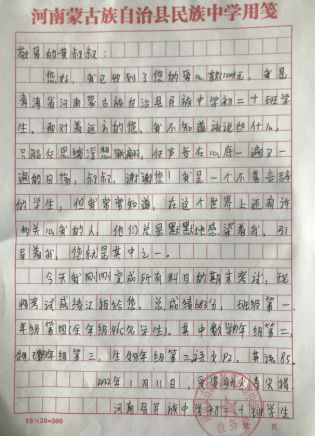 河南蒙古族自治县民族中学用笺
敬爱的黄叔叔：
您好，我已收到了您的爱心款1200元，我是
青海省河南蒙古族自治县民族中学初二十班学
生。面对着远方的您，我不知道该说些什么，
只能任思绪浮想联翩，任声音在心底一遍又一
遍的回荡，叔叔，谢谢您！我是一个不善言
的学生，但我常常知道，在这个世界上还有许
多关心我的人，他们总是默默地感染着我，引
导着我，您就是其中之一。
今天我刚刚完成所有科目的期末考试，现
将考试成绩汇报给您。总成绩683分，班级第一，
年级第四（全年级456名学生）。其中数学年级第二，
物理年级第三，生物年级第三，语文92，英语85。
2022年1月11日，
河南县民族中学初 学生
15×20=300
教务
页